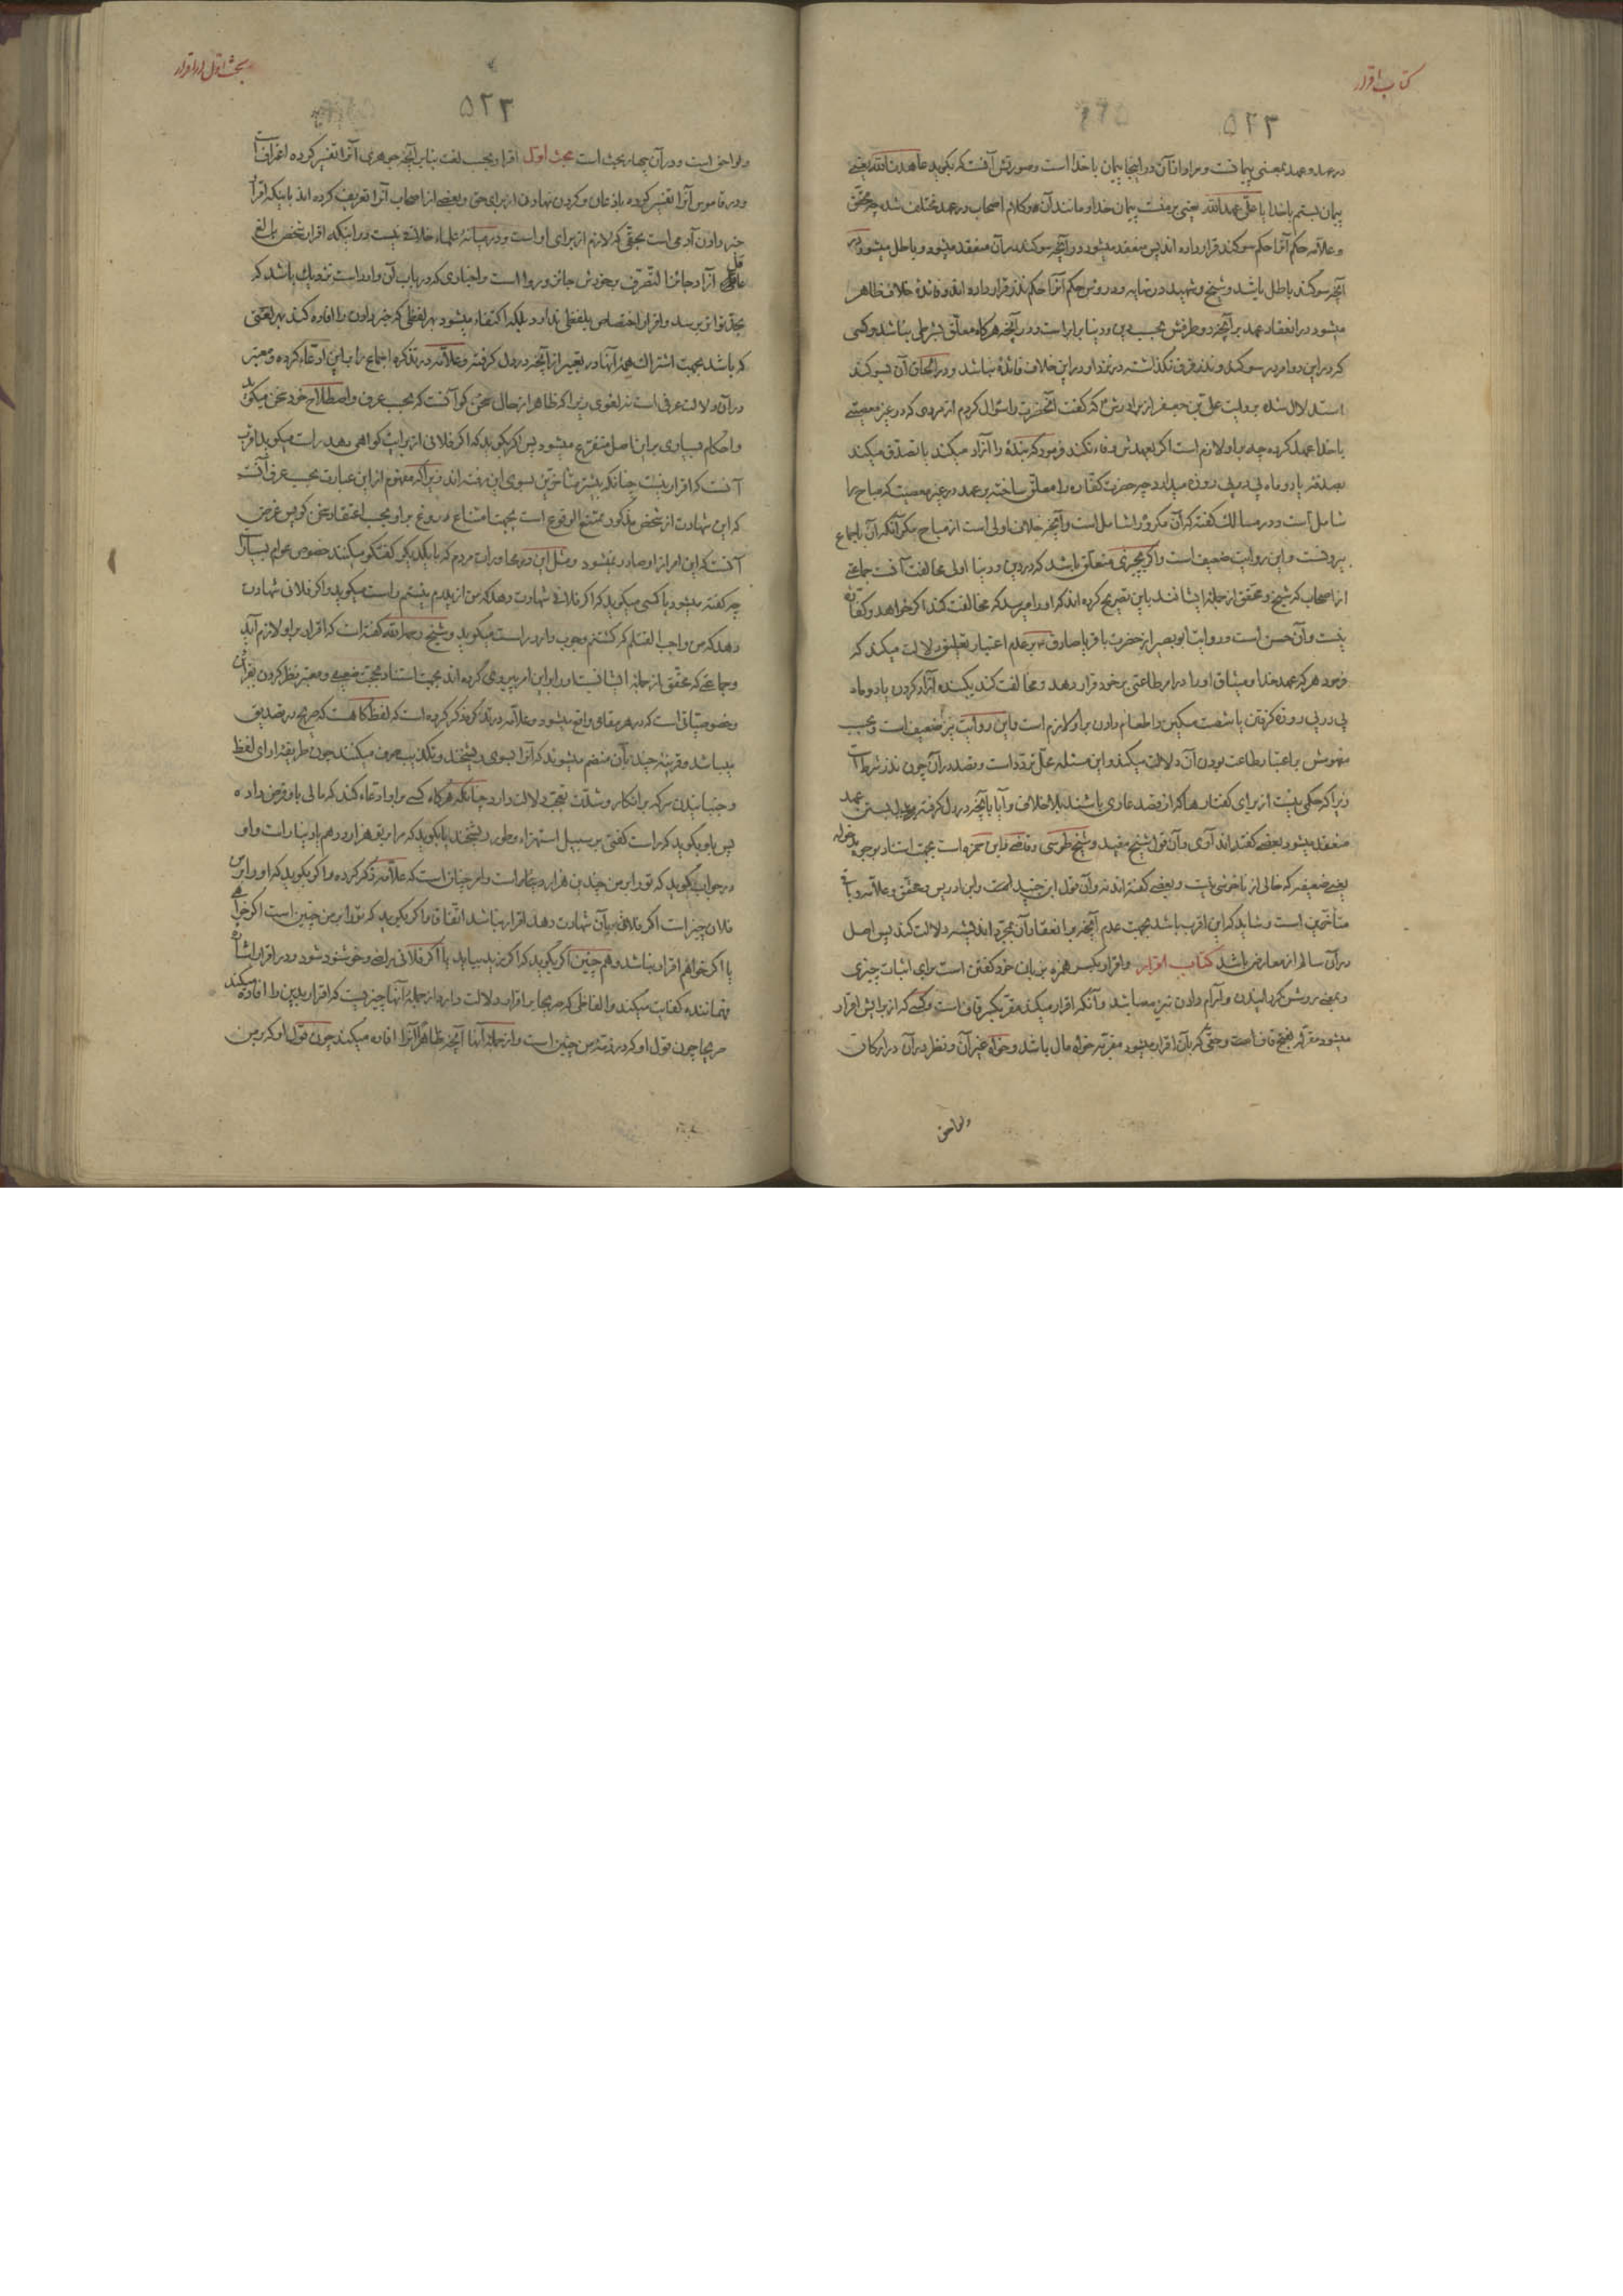 کتاب اقرار
۵۲۳
در عهد و عهد بمعنی پیمانست و مراد از آن در اینجا پیمان با خدا است و صورتش آنست که بگوید عاهدت الله یعنی
پیمان بستم با خدا یا علی عهد الله یعنی بر منست پیمان خدا و مانند آن و کلام اصحاب در عهد مختلف شده چه محقق
و علامه حکم آنرا حکم سوکند قرار داده اند پس منعقد میشود در آنچه سوکند در آن منعقد میشود و باطل میشود در
آنچه سوکند باطل باشد و شیخ و شهید در نهایه و دروس حکم آنرا حکم نذر قرار داده اند و فائدهٔ خلاف ظاهر
میشود در انعقاد عهد بر آنچه دو طرفش بحسب دین و دنیا برابر است و در آنچه هرکاه معلق بشرطی نباشد و کسی
که در این دو امر در سوکند و نذر فرق نکذاشته در نزد او در این خلاف فائدهٔ نباشد و در الحاق آن بسوکند
استدلال شده بروایت علی بن جعفر از برادرش که کفت آنحضرت را سؤال کردم از مردی که در غیر معصیتی
با خدا عهد کرده چه بر او لازم است اکر بعهدش وفاء نکند فرمود که بندهٔ را آزاد میکند یا تصدق میکند
بصدقه یا دو ماه پی در پی روزه میدارد چه حضرت کفاره را معلق ساخته بر عهد در غیر معصیت که مباح را
شامل است و در مسالک کفته که آن مکروه را شامل است و آنچه خلاف اولی است از مباح مکر آنکه آن باجماع
بیرونست و این روایت ضعیف است و اکر بچیزی متعلق باشد که در دین و دنیا اولی مخالفت آنست جماعتی
از اصحاب که شیخ و محقق از جملهٔ ایشانند باین تصریح کرده اند که او را میرسد که مخالفت کند اکر خواهد و کفاره
نیست و آن حسن است و روایت ابو بصیر از حضرت باقر یا صادق بر عدم اعتبار تعلیق دلالت میکند که
فرمود هر که عهد خدا و میثاق او را در امر طاعتی بر خود قرار دهد و مخالفت کند بکبنده آزاد کردن یا دو ماه
پی در پی روزه کرفتن یا شصت مسکین را طعام دادن بر او لازم است و این روایت نیز ضعیف است و بحسب
مفهومش بر اعتبار طاعت بودن آن دلالت میکند و این مسئله محل تردد است و قصد در آن چون نذر شرط است
زیرا که حکمی نیست از برای کفتارها که از قصد عاری باشند بلا خلاف و آیا بآنچه در دل کرفته عهد
منعقد میشود بعضی کفته اند آری و آن قول شیخ مفید و شیخ طوسی و قاضی و ابن حمزه است بجهت استناد بوجوه
ضعیفه که خالی از ناخوشی نیست و بعضی کفته اند نه و آن قول ابن جنید است و ابن ادریس و محقق و علامه و باقی
متأخرین است و شاید که این اقرب باشد بجهت عدم آنچه بر انعقاد آن بمجرد اندیشه دلالت کند پس اصل
در آن سالم از معارض باشد کتاب اقرار و اقرار بکسر همزه بزبان خود کفتن است برای اثبات چیزی
و بمعنی روشن کردانیدن و آرام دادن نیز میباشد و آنکه اقرار میکند مقر بکسر قاف است و کسی که از برایش اقرار
میشود مقر له بفتح قاف است و حقی که بآن اقرار میشود مقر به خواه مال باشد و خواه غیر آن و نظر در آن در ارکان
ولواحق
بحث اول در اقرار
۵۲۳
ولواحق است و در آن چهار بحث است بحث اول اقرار بحسب لغت بنابر آنچه جوهری آنرا تفسیر کرده اعترافست
و در قاموس آنرا تفسیر کرده باذعان و کردن نهادن از برای حق و بعضی از اصحاب آنرا تعریف کرده اند باینکه اقرار
خبر دادن آدمی است بحقی که لازم از برای او است و در میانهٔ علماء خلافی نیست در اینکه اقرار شخص بالغ
عاقل آزاد جائز التصرف بر خودش جائز و روا است و اخباری که در باب آن وارد است نزدیک باشد که
بحد تواتر برسد و اقرار اختصاص بلفظی ندارد بلکه اکتفاء میشود بهر لفظی که خبر دادن را افاده کند بهر لغتی
که باشد بجهت اشتراک همهٔ آنها در تعبیر از آنچه در دل کرفته و علامه در تذکره اجماع را باین ادعاء کرده و معتبر
در آن دلالت عرفی است نه لغوی زیرا که ظاهر از حال سخن کو آنست که بحسب عرف و اصطلاح خود سخن میکوید
و احکام بسیاری بر این اصل متفرع میشود پس اکر بکوید که اکر فلانی از برایت کواهی دهد راست میکوید اقرب
آنست که اقرار نیست چنانکه بیشتر متأخرین بسوی این رفته اند زیرا که مفهوم از این عبارت بحسب عرف آنست
که این شهادت از شخص مذکور ممتنع الوقوع است بجهت امتناع دروغ بر او بحسب اعتقاد سخن کو پس غرض
آنست که این امر از او صادر نمیشود و مثل این در محاورات مردم که با یکدیکر کفتکو میکنند خصوص عوام بسیار است
چه کفته میشود با کسی میکوید که اکر فلانی شهادت دهد که من از پدرم نیستم راست میکوید و اکر فلانی شهادت
دهد که من واجب القتلم که کشتنم وجوب دارد راست میکوید و شیخ رحمه الله کفته است که اقرار بر او لازم آید
و جماعتی که محقق از جملهٔ ایشانست او را در این امر پیروی کرده اند بجهت استناد بحجت ضعیفی و معتبر نظر کردن بقرائن
و خصوصیاتی است که در هر مقامی واقع میشود و علامه در تذکره ذکر کرده است که لفظ کاهست که صریح در تصدیق
میباشد و قرینهٔ چند بآن منضم میشوند که آنرا بسوی ریشخند و تکذیب صرف میکنند چون طریقهٔ ادای لفظ
و جنبانیدن سر که بر انکار و شدت تعجب دلالت دارد چنانکه هرکاه کسی بر او ادعاء کند که مالی باو قرض داده
پس باو بکوید که راست کفتی بر سبیل استهزاء و طور ریشخند یا بکوید که مرا بر تو هزار درهم یا دینار است و او
در جواب بکوید که تو را بر من چندین هزار دینار است و امر چنان است که علامه ذکر کرده و اکر بکوید که او را بر من
فلان چیز است اکر فلانی بآن شهادت دهد اقرار نباشد اتفاقا و اکر بکوید که تو را بر من چنین است اکر خواهی
یا اکر خواهم اقرار نباشد و هم چنین اکر بکوید که اکر زید بیاید یا اکر فلانی راضی و خوشنود شود و در اقرار اشارهٔ
فهماننده کفایت میکند و الفاظی که صریحا بر اقرار دلالت دارد از جملهٔ آنها چیزیست که اقرار بدین را افاده میکند
صریحا چون قول او که در ذمهٔ من چنین است و از جملهٔ آنها آنچه ظاهرا آنرا افاده میکند چون قول او که بر من